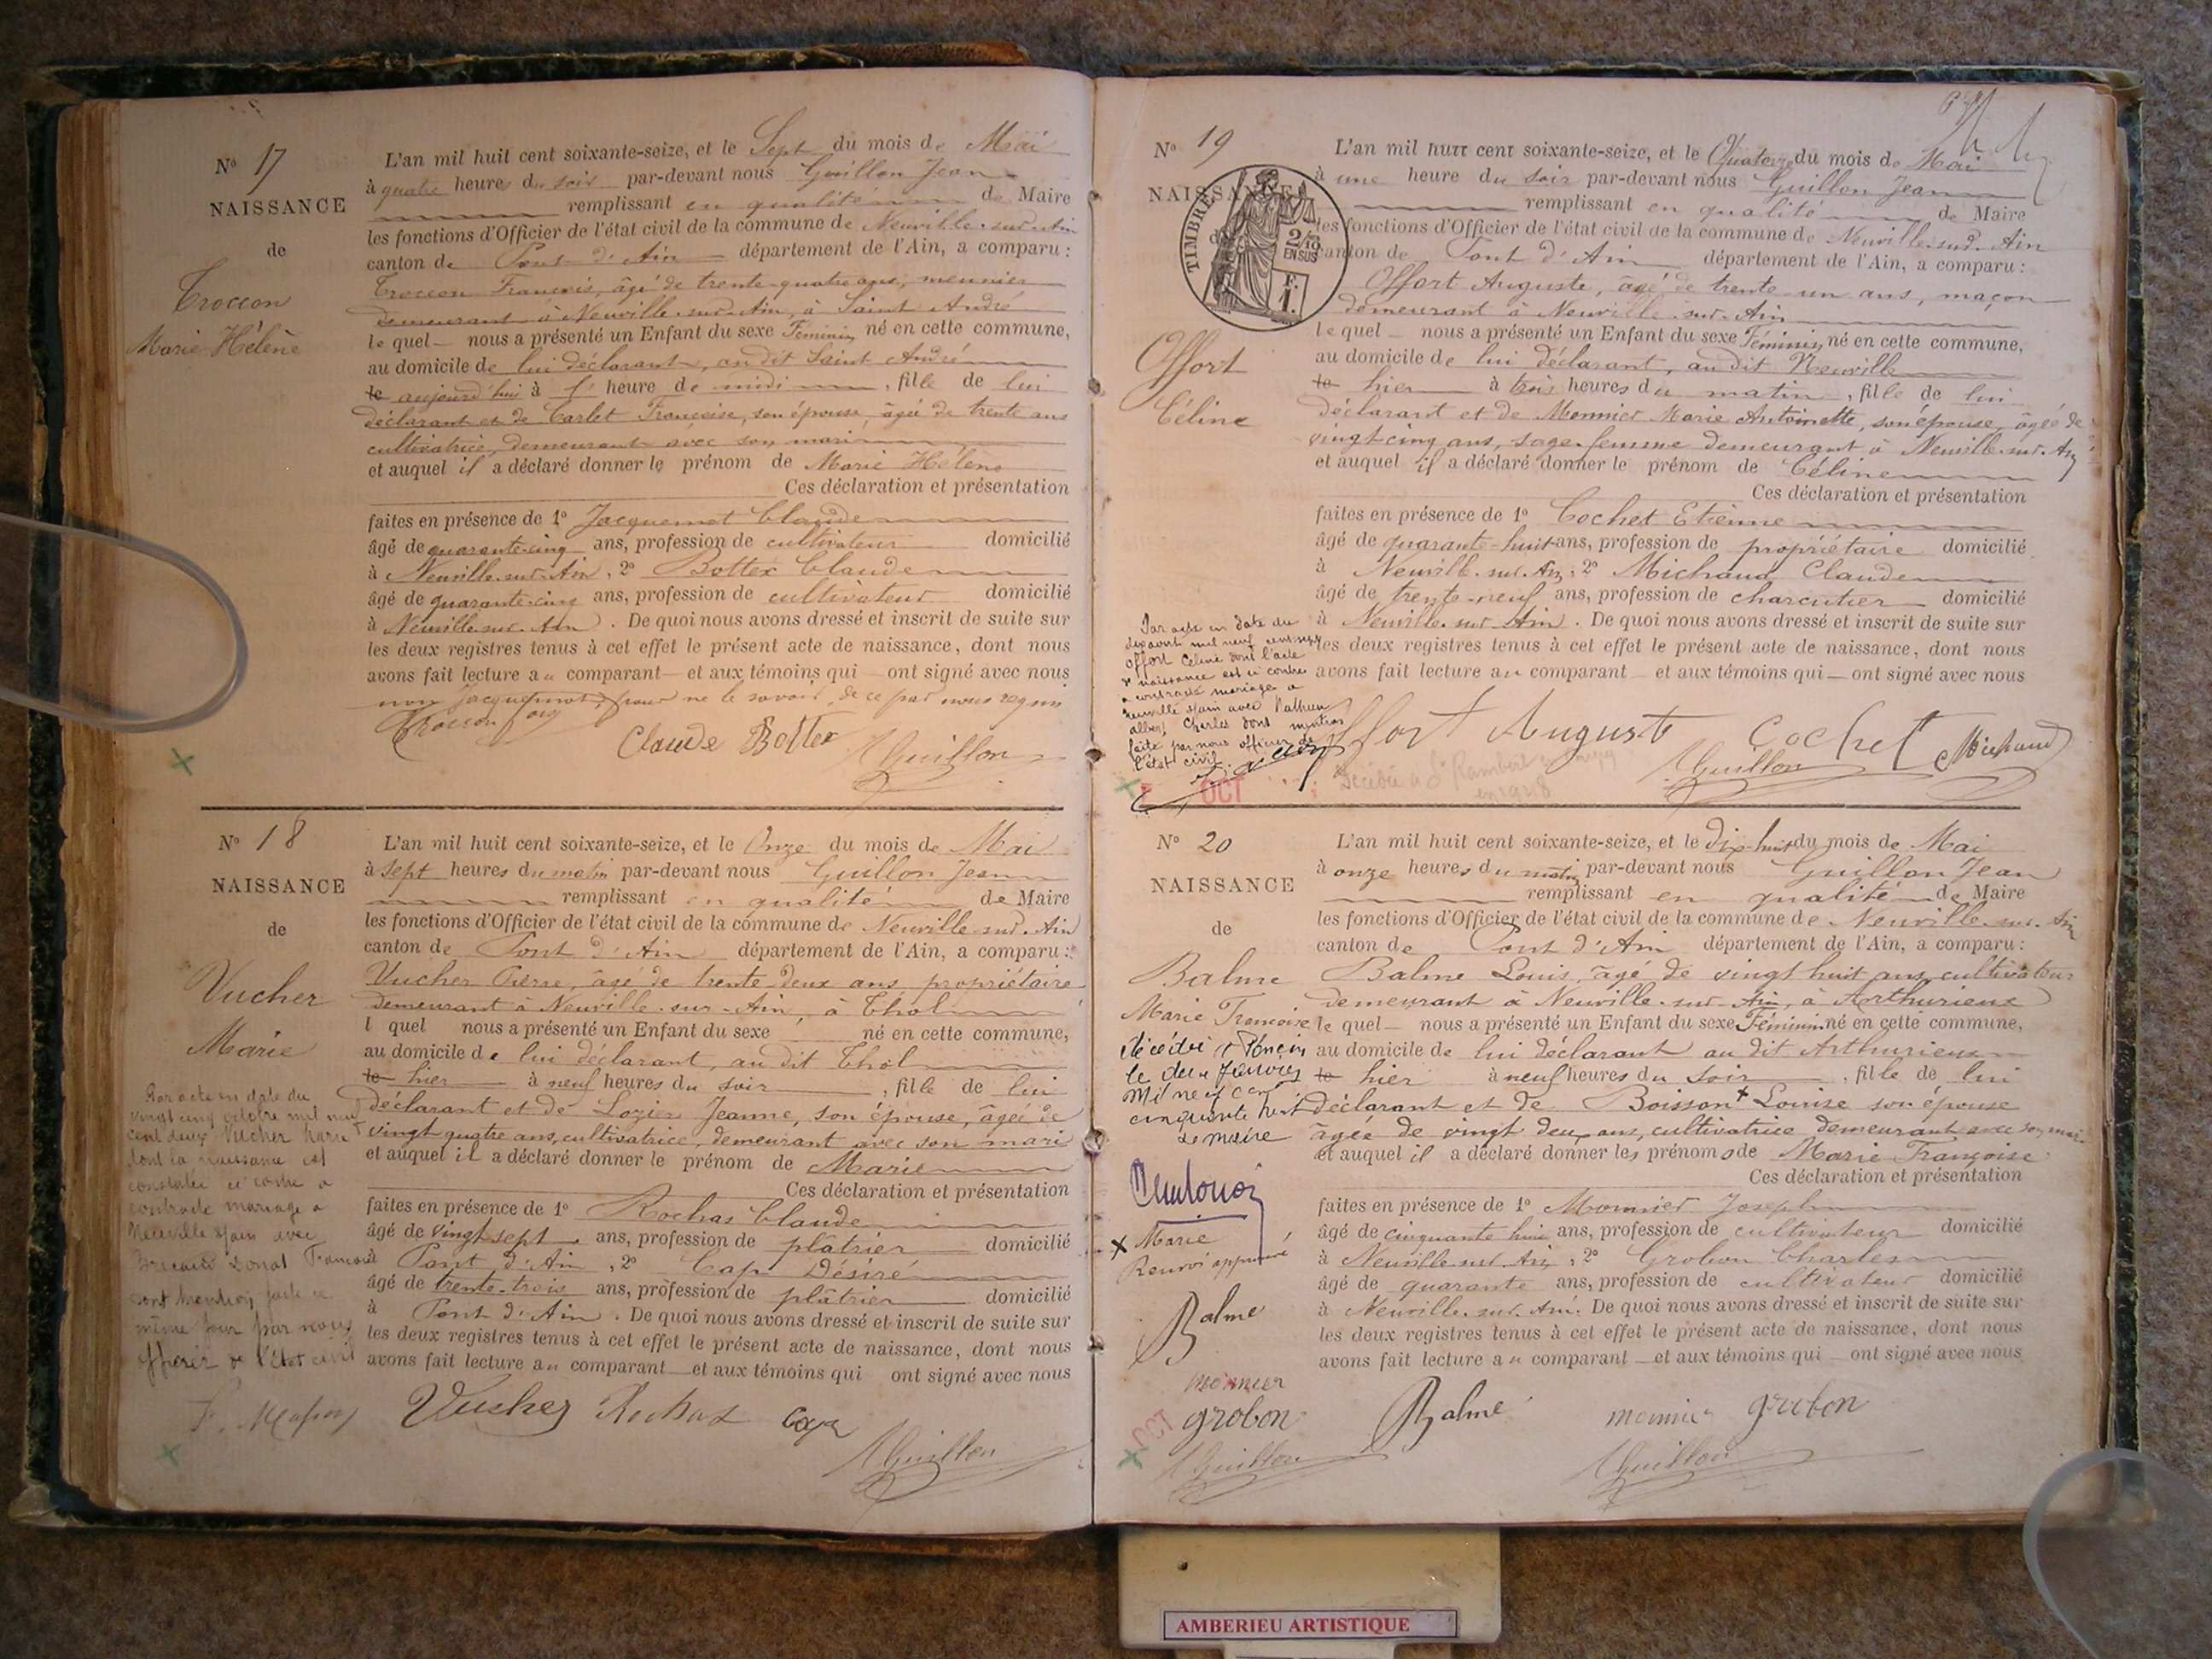 N° 17
NAISSANCE
de
Troccon
Marie Hélène
L'an mil huit cent soixante-seize, et le Sept du mois de Mai
à quatre heures du soir par-devant nous Guillon Jean
remplissant en qualité de Maire
les fonctions d'Officier de l'état civil de la commune de Neuville-sur-Ain
canton de Pont d'Ain département de l'Ain, a comparu :
Troccon François, âgé de trente-quatre ans, meunier
demeurant à Neuville-sur-Ain, à Saint André
lequel nous a présenté un Enfant du sexe Féminin né en cette commune,
au domicile de lui déclarant, au dit Saint André
le aujourd'hui à heure de midi, fille de lui
déclarant et de Carlet Françoise, son épouse, âgée de trente ans
cultivatrice, demeurant avec son mari
et auquel il a déclaré donner le prénom de Marie Hélène
Ces déclaration et présentation
faites en présence de 1° Jacquemot Claude
âgé de quarante-cinq ans, profession de cultivateur domicilié
à Neuville-sur-Ain, 2° Bottex Claude
âgé de quarante-cinq ans, profession de cultivateur domicilié
à Neuville-sur-Ain. De quoi nous avons dressé et inscrit de suite sur
les deux registres tenus à cet effet le présent acte de naissance, dont nous
avons fait lecture au comparant et aux témoins qui ont signé avec nous
non Jacquemot, pour ne le savoir, de ce par nous requis
Troccon Claude Bottex Guillon
N° 18
NAISSANCE
de
Vucher
Marie
Par acte en date du
vingt cinq octobre mil neuf
cent deux Vucher Marie
dont la naissance est
constatée ci contre a
contracté mariage à
Neuville s/ain avec
Donat François
dont mention faite ce
même jour par nous
officier de l'état civil
L'an mil huit cent soixante-seize, et le Onze du mois de Mai
à sept heures du matin par-devant nous Guillon Jean
remplissant en qualité de Maire
les fonctions d'Officier de l'état civil de la commune de Neuville-sur-Ain
canton de Pont d'Ain département de l'Ain, a comparu :
Vucher Pierre, âgé de trente-deux ans, propriétaire
demeurant à Neuville-sur-Ain, à Thol
l quel nous a présenté un Enfant du sexe né en cette commune,
au domicile de lui déclarant, au dit Thol
le hier à neuf heures du soir, fille de lui
déclarant et de Lozier Jeanne, son épouse, âgée de
vingt quatre ans, cultivatrice, demeurant avec son mari
et auquel il a déclaré donner le prénom de Marie
Ces déclaration et présentation
faites en présence de 1° Rochas Claude
âgé de vingt-sept ans, profession de plâtrier domicilié
à Pont d'Ain, 2° Cap Désiré
âgé de trente-trois ans, profession de plâtrier domicilié
à Pont d'Ain. De quoi nous avons dressé et inscrit de suite sur
les deux registres tenus à cet effet le présent acte de naissance, dont nous
avons fait lecture au comparant et aux témoins qui ont signé avec nous
Vucher Rochas Cap
Guillon
N° 19
NAISSANCE
TIMBRE
2/10
EN SUS
F.
1.
Offort
Céline
L'an mil huit cent soixante-seize, et le Quatorze du mois de Mai
à une heure du soir par-devant nous Guillon Jean
remplissant en qualité de Maire
les fonctions d'Officier de l'état civil de la commune de Neuville-sur-Ain
canton de Pont d'Ain département de l'Ain, a comparu :
Offort Auguste, âgé de trente-un ans, maçon
demeurant à Neuville-sur-Ain
lequel nous a présenté un Enfant du sexe Féminin né en cette commune,
au domicile de lui déclarant, au dit Neuville
le hier à trois heures du matin, fille de lui
déclarant et de Monnier Marie Antoinette, son épouse, âgée de
vingt-cinq ans, sage-femme demeurant à Neuville-sur-Ain
et auquel il a déclaré donner le prénom de Céline
Ces déclaration et présentation
faites en présence de 1° Cochet Etienne
âgé de quarante-huit ans, profession de propriétaire domicilié
à Neuville-sur-Ain, 2° Michaud Claude
âgé de trente-neuf ans, profession de charcutier domicilié
à Neuville-sur-Ain. De quoi nous avons dressé et inscrit de suite sur
les deux registres tenus à cet effet le présent acte de naissance, dont nous
avons fait lecture au comparant et aux témoins qui ont signé avec nous
Par acte en date du
mil neuf cent
Offort Céline dont l'acte
de naissance est ci contre
a contracté mariage à
Neuville s/ain avec
Albert Charles dont mention
faite par nous officier de
l'état civil
Offort Auguste Cochet
Guillon Michaud
OCT
Décédée à St Rambert
N° 20
NAISSANCE
de
Balme
Marie Françoise
décédée à Poncin
le deux février
mil neuf cent
cinquante huit
Le maire
x Marie
Renvoi approuvé
Balme
monnier
grobon
Guillon
OCT
L'an mil huit cent soixante-seize, et le dix-huit du mois de Mai
à onze heures du matin par-devant nous Guillon Jean
remplissant en qualité de Maire
les fonctions d'Officier de l'état civil de la commune de Neuville-sur-Ain
canton de Pont d'Ain département de l'Ain, a comparu :
Balme Louis, âgé de vingt huit ans, cultivateur
demeurant à Neuville-sur-Ain, à Arthurieux
lequel nous a présenté un Enfant du sexe Féminin né en cette commune,
au domicile de lui déclarant au dit Arthurieux
le hier à neuf heures du soir, fille de lui
déclarant et de Boisson x Louise son épouse
âgée de vingt deux ans, cultivatrice demeurant avec son mari
et auquel il a déclaré donner les prénoms de Marie Françoise
Ces déclaration et présentation
faites en présence de 1° Monnier Joseph
âgé de cinquante huit ans, profession de cultivateur domicilié
à Neuville-sur-Ain, 2° Grobon Charles
âgé de quarante ans, profession de cultivateur domicilié
à Neuville-sur-Ain. De quoi nous avons dressé et inscrit de suite sur
les deux registres tenus à cet effet le présent acte de naissance, dont nous
avons fait lecture au comparant et aux témoins qui ont signé avec nous
Balme monnier grobon
Guillon
AMBERIEU ARTISTIQUE